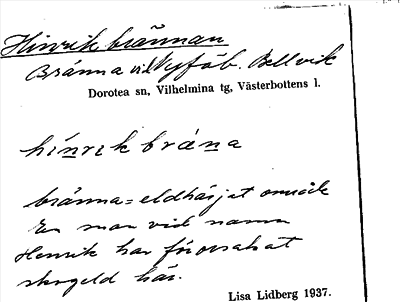 Hinrik brännan
Bränna vid Nyfåb. Bellvik
Dorotea sn, Vilhelmina tg, Västerbottens l.
hínrık brána
bränna = eldhärjat område
En man vid namn
Henrik har förorsakat
skogeld här.
Lisa Lidberg 1937.